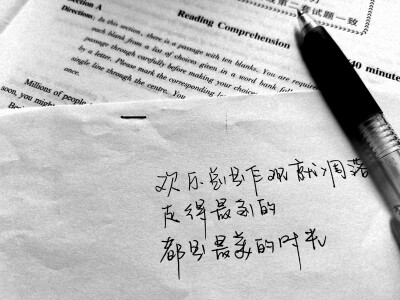 套试题一致
Reading Comprehension
40 minute
ection A
Directions: In this section, there is a passage with ten blanks. You are require
each blank from a list of choices given in a word bank
passage through carefully before making your choices
by a letter. Please mark the corresponding
single line through the centre. You
Millions of people
soon, you might
欢乐总是乍现就凋落
走得最急的
都是最美的时光